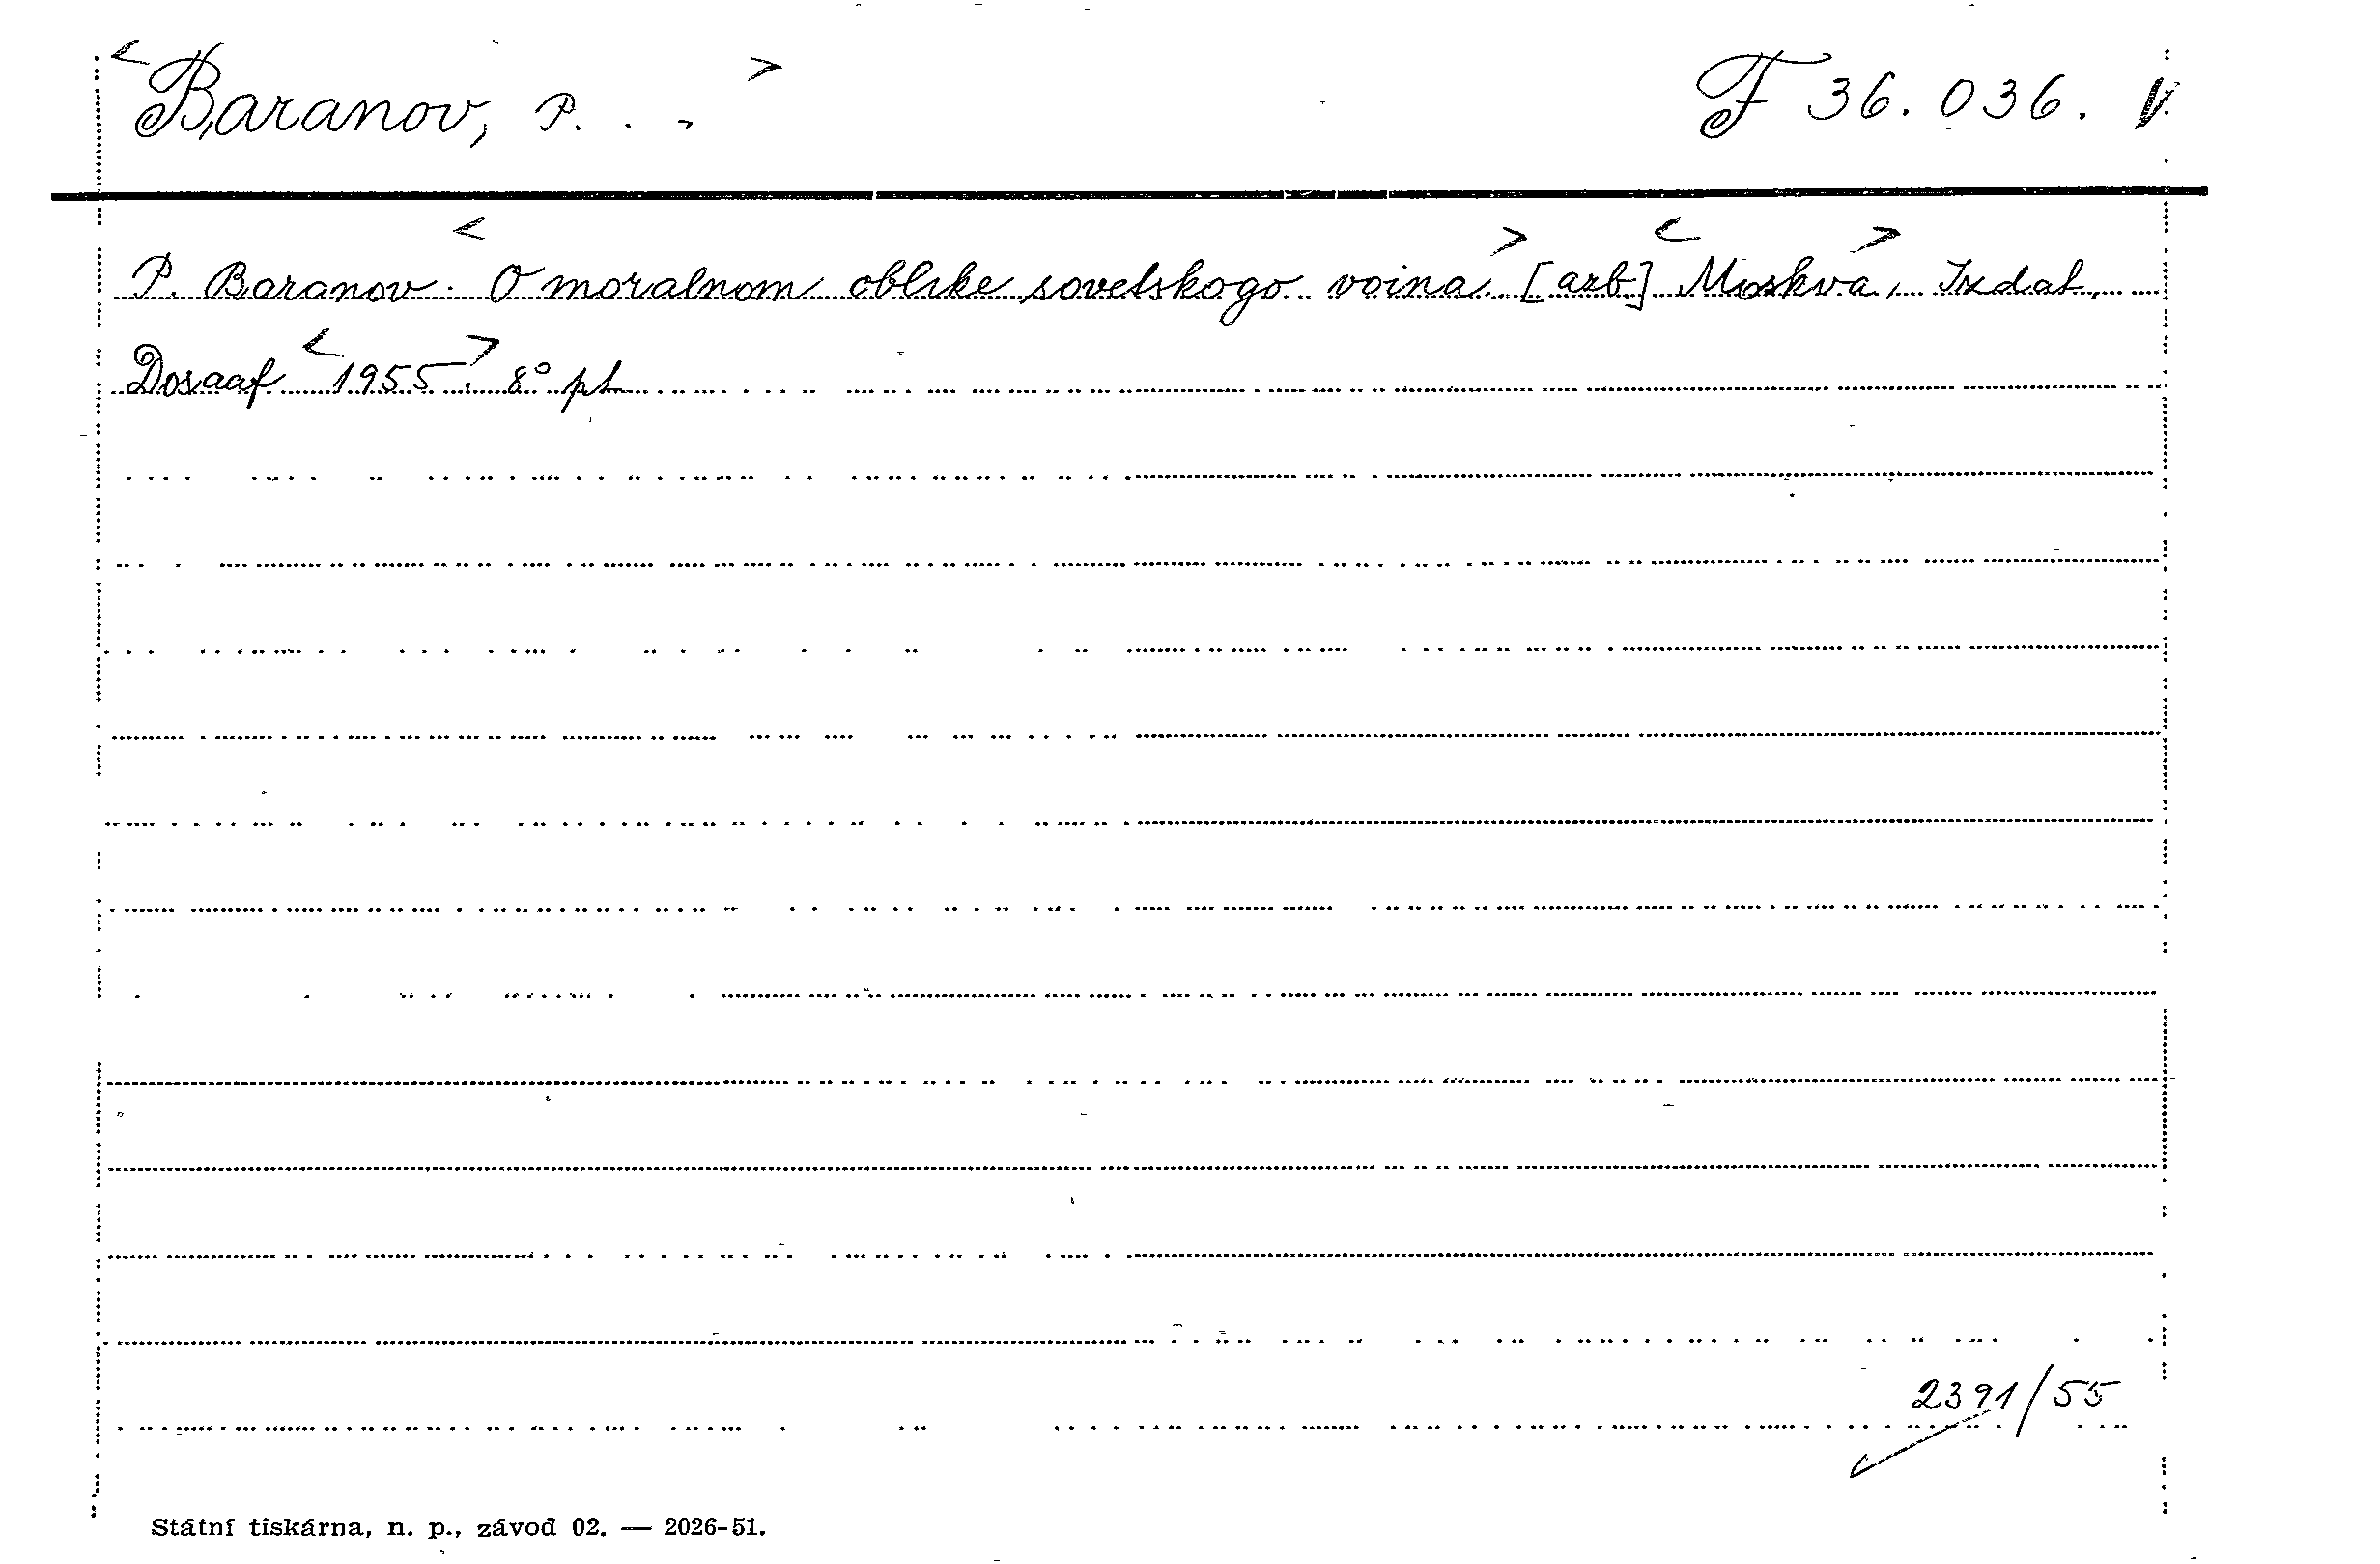 < Baranov, P. . . > F 36.036. V.
P. Baranov. < O moralnom oblike sovetskogo voina. > [azb.] < Moskva, > Izdat.
Dosaaf < 1955. > 8° pt
2391/55
Státní tiskárna, n. p., závod 02. — 2026-51.